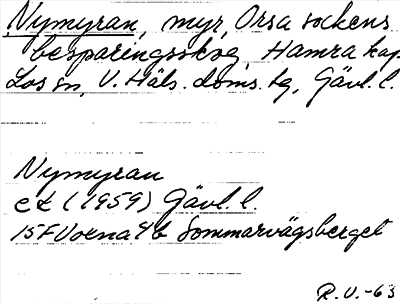 Nymyran, myr, Orsa sockens
besparingsskog, Hamra kap.
Los sn, V. Häls. doms. tg, Gävl. l.
Nymyran
ek (1959) Gävl. l.
15F Voxna 4b Sommarvägsberget
R.U.-63